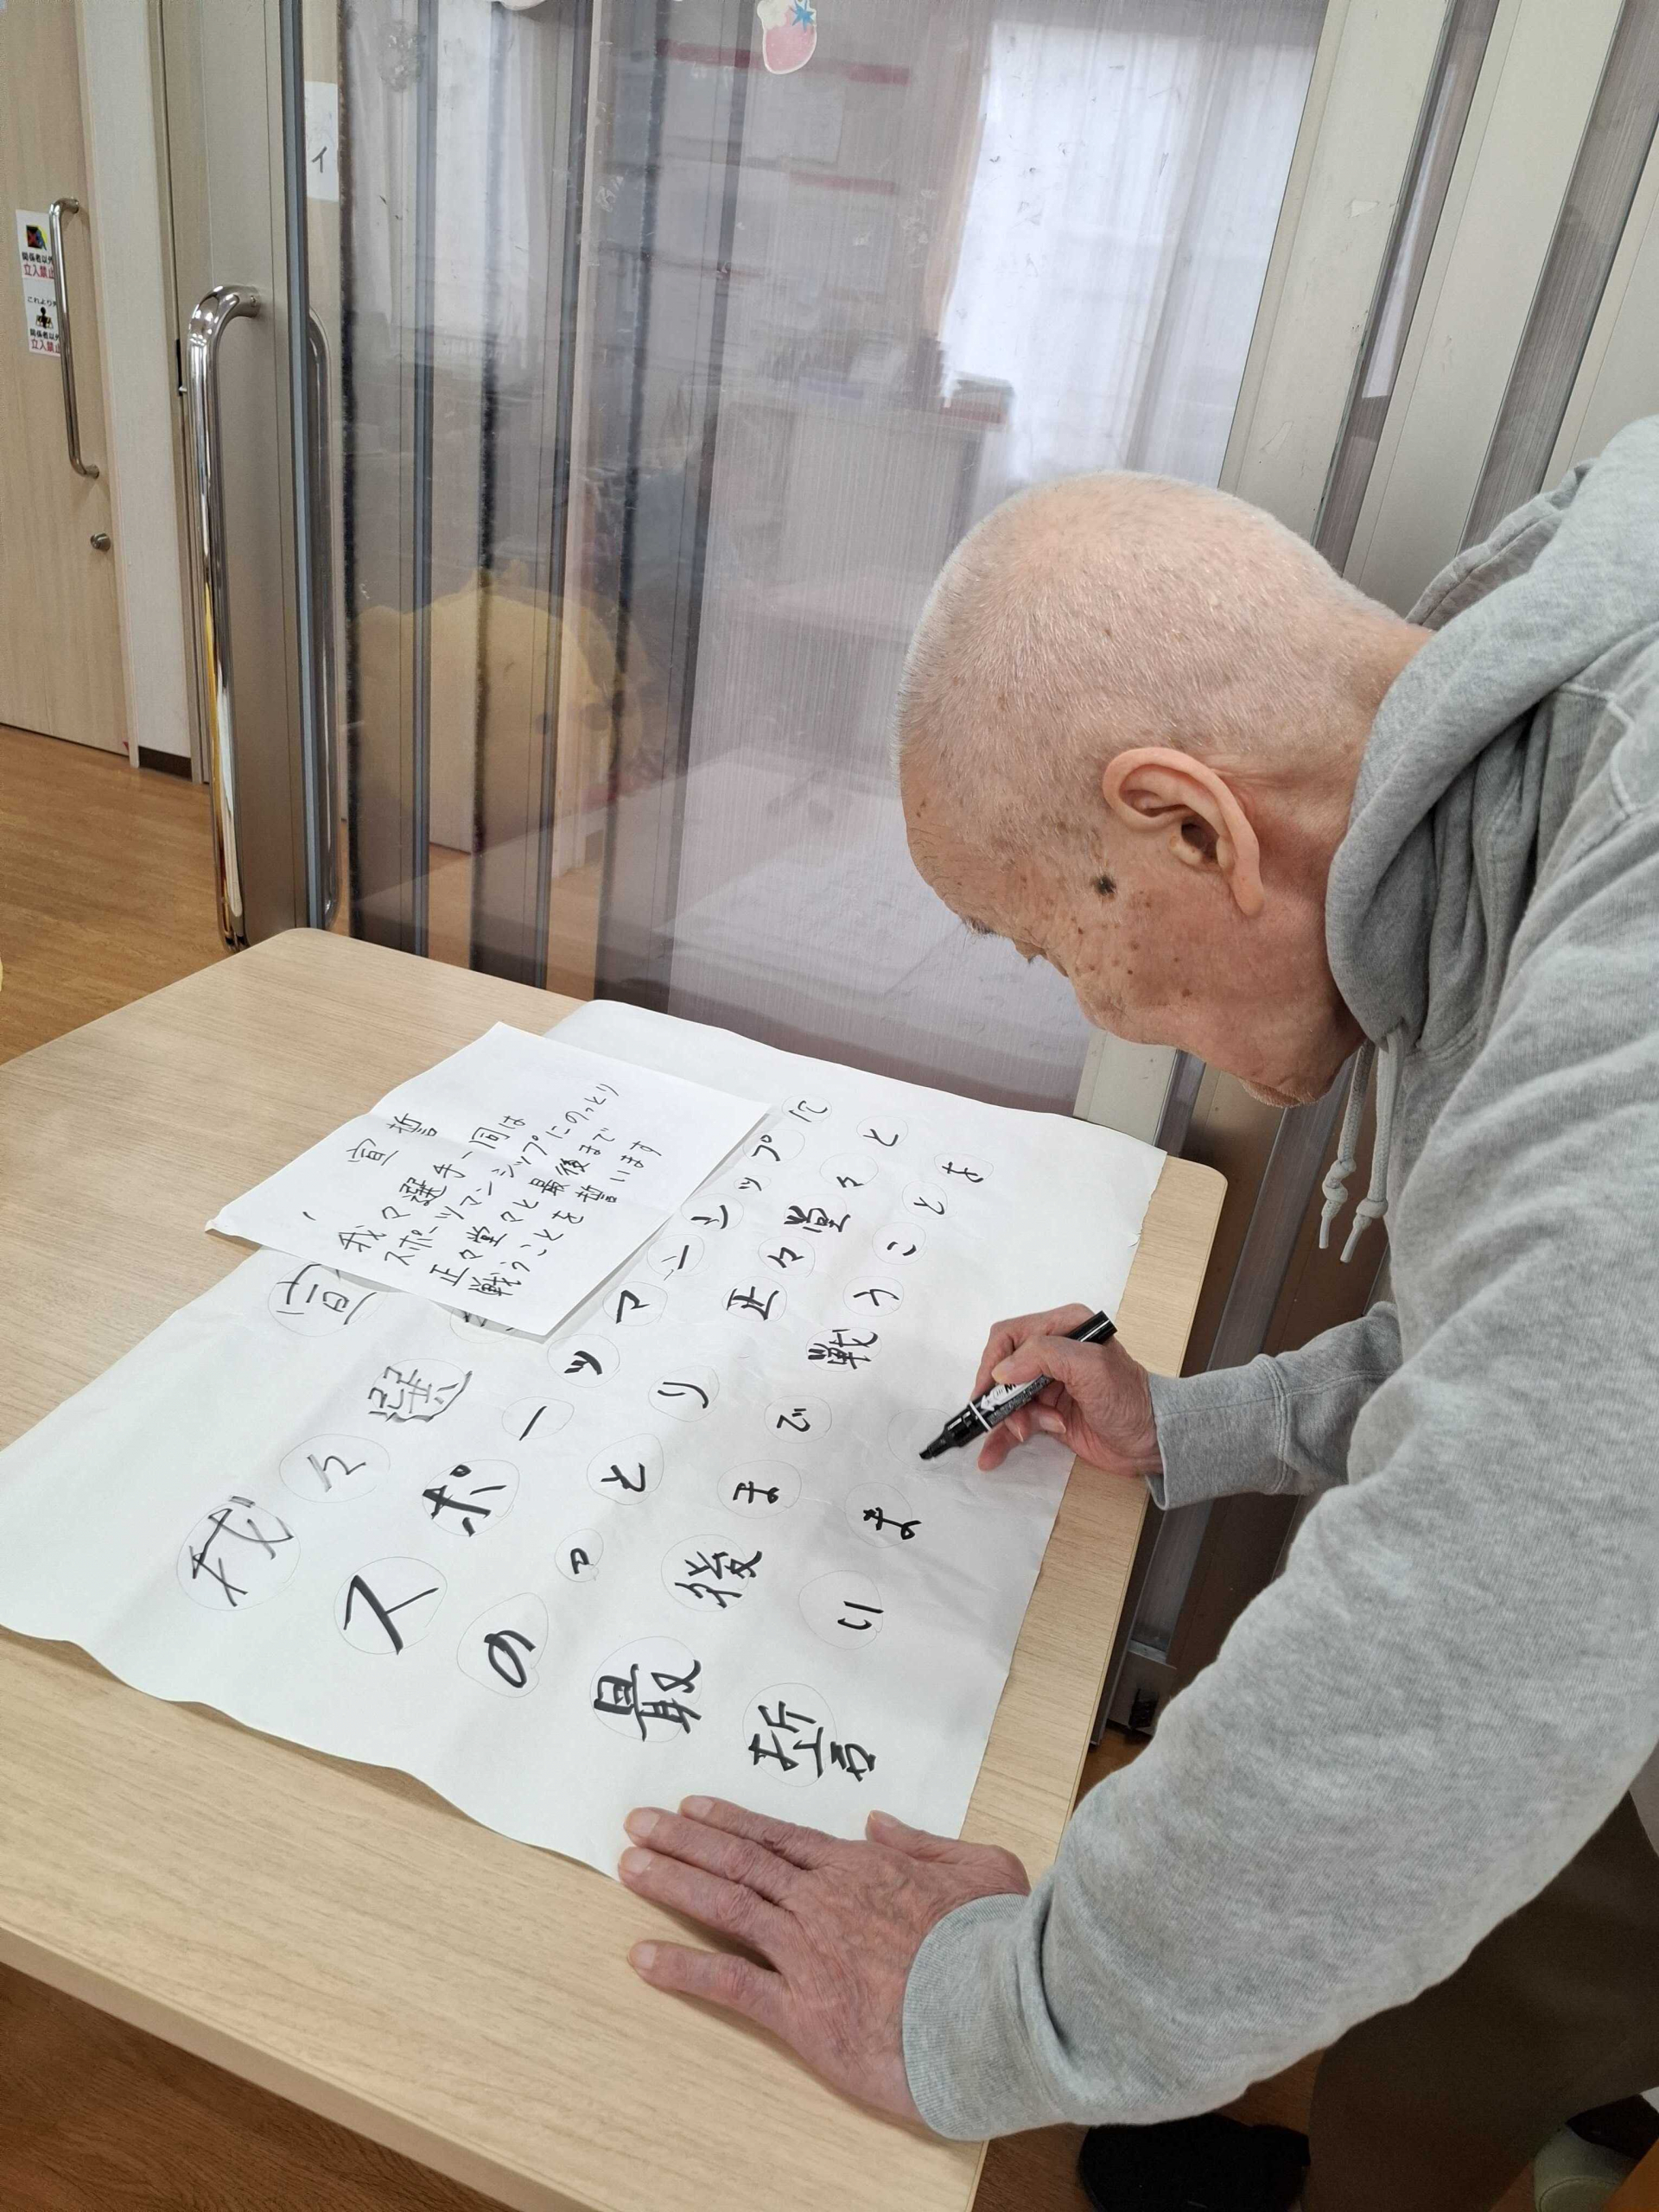 イ
関係者以外
立入禁止
これより
関係者以外
立入禁止
宣誓
我々選手一同は
スポーツマンシップにのっとり
正々堂々と最後まで
戦うことを誓います
宣
我々選
スポーツマンシップに
のっとり正々堂々と
最後まで戦うことを
誓いま